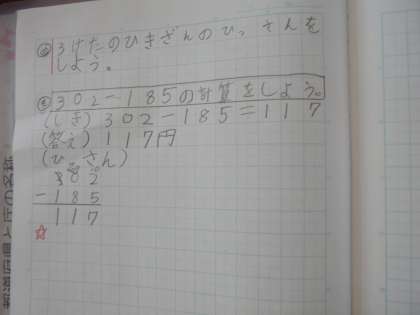 め 3けたのひきざんのひっさんを
しよう。
302-185の計算をしよう。
(しき) 302-185=117
(答え) 117円
(ひっさん)
302
-185
117